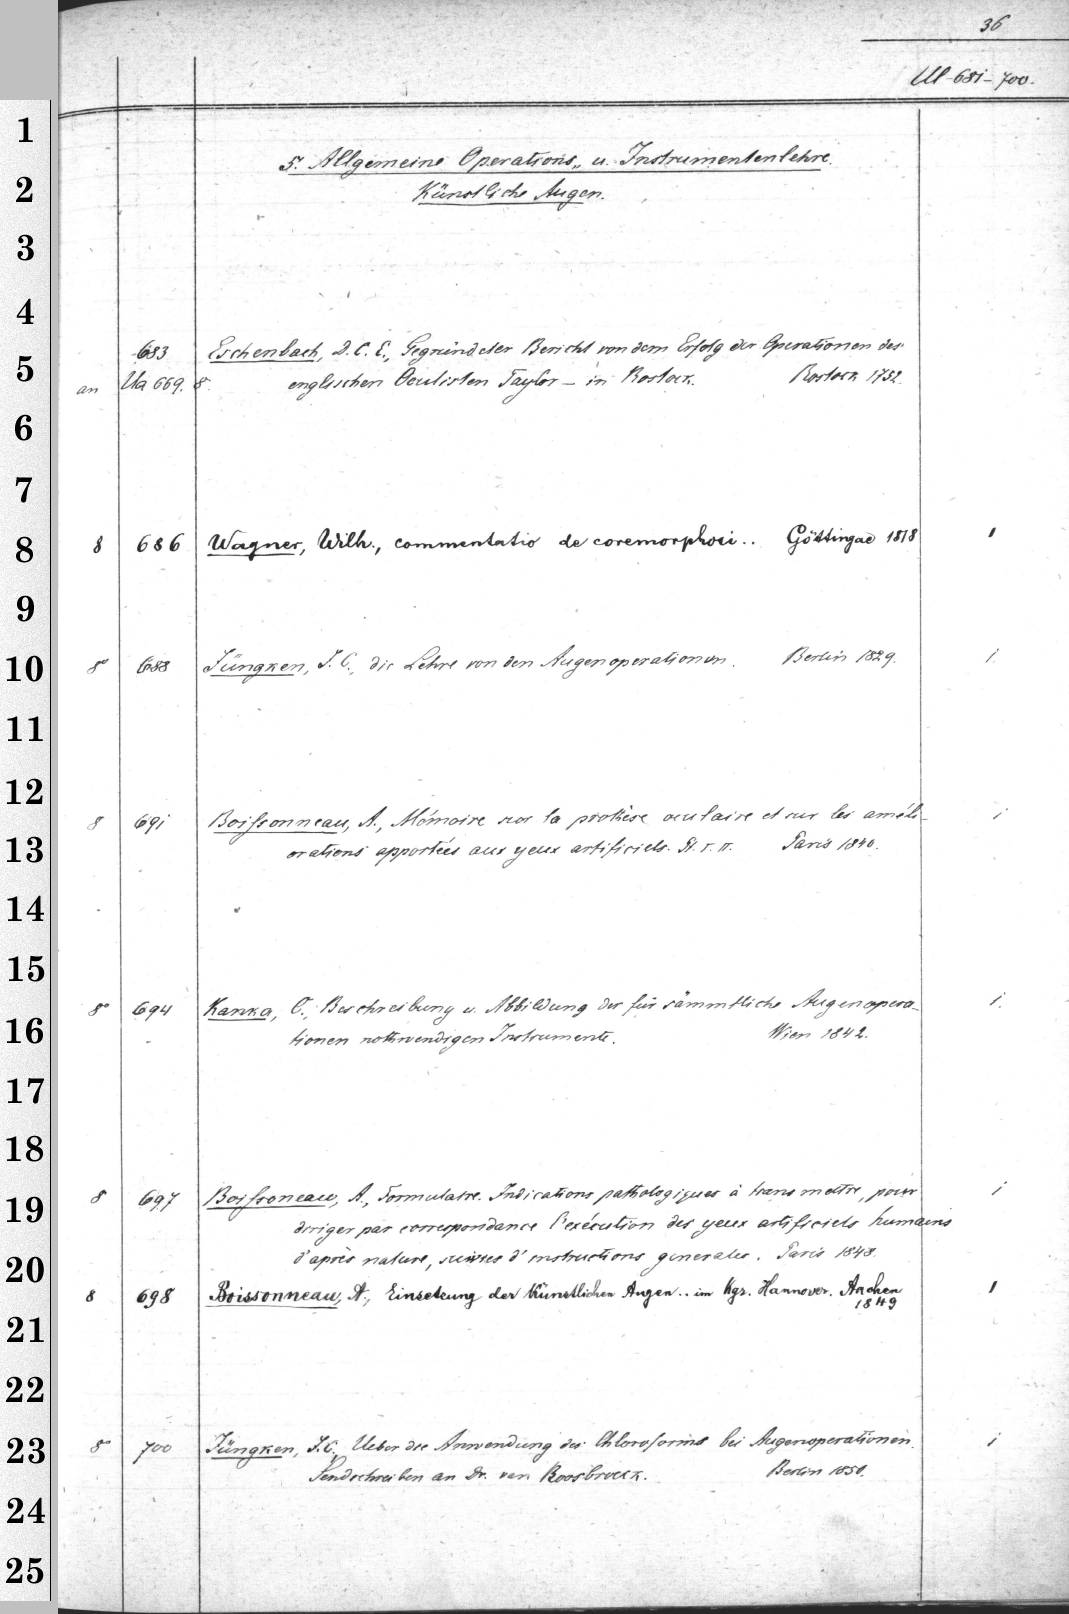 36
Ul 681-700.
5. Allgemeine Operations- u. Instrumentenlehre.
Künstliche Augen.
683 Eschenbach, D. C. E., Gegründeter Bericht von dem Erfolg der Operationen des
an Ua 669. 8°. englischen Oculisten Taylor - in Rostock. Rostock 1752.
8 686 Wagner, Wilh., commentatio de coremorphosi.. Göttingae 1818 1
8° 688 Jüngken, J. C., die Lehre von den Augenoperationen. Berlin 1829. 1.
8 691 Boissonneau, A., Mémoire sur la prothèse oculaire et sur les améli- 1
orations apportées aux yeux artificiels. Pt. I. II. Paris 1840.
8° 694 Kanka, C., Beschreibung u. Abbildung der für sämmtliche Augenopera- 1.
tionen nothwendigen Instrumente. Wien 1842.
8 697 Boissoneau, A., Formulaire. Indications pathologiques à transmettre, pour 1
diriger par correspondance l'exécution des yeux artificiels humains
d'après nature, suivies d'instructions generales. Paris 1848.
8 698 Boissonneau, A., Einsetzung der Künstlichen Augen.. im Kgr. Hannover. Aachen 1
1849
8° 700 Jüngken, J. C., Ueber die Anwendung des Chloroforms bei Augenoperationen. 1
Sendschreiben an Dr. van Roosbroeck. Berlin 1850.
1
2
3
4
5
6
7
8
9
10
11
12
13
14
15
16
17
18
19
20
21
22
23
24
25